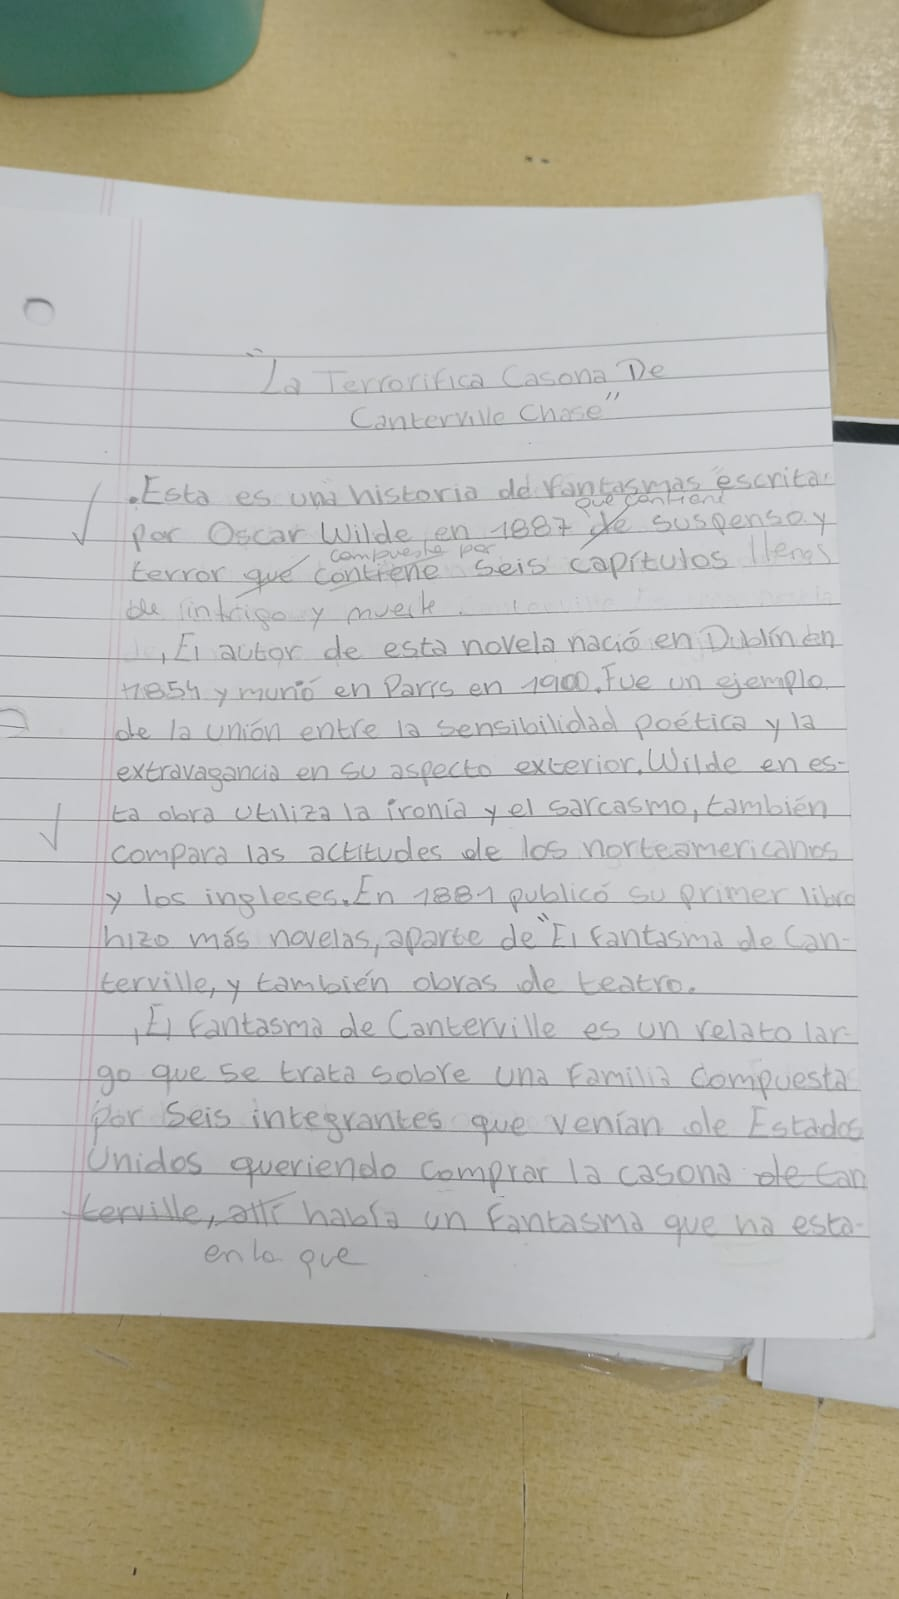 "La Terrorifica Casona De
Canterville Chase"
.Esta es una historia de fantasmas escrita
que contiene
por Oscar Wilde, en 1887 de suspenso y
compuesta por
terror que contiene seis capítulos llenos
de intriga y muerte.
El autor de esta novela nació en Dublín en
1854 y murió en París en 1900. Fue un ejemplo
de la unión entre la sensibilidad poética y la
extravagancia en su aspecto exterior. Wilde en es-
ta obra utiliza la ironía y el sarcasmo, también
compara las actitudes de los norteamericanos
y los ingleses. En 1881 publicó su primer libro
hizo más novelas, aparte de "El fantasma de Can-
terville, y también obras de teatro.
El fantasma de Canterville es un relato lar-
go que se trata sobre una familia compuesta
por seis integrantes que venían de Estados
Unidos queriendo comprar la casona de Can
terville, allí había un fantasma que ha esta-
en la que